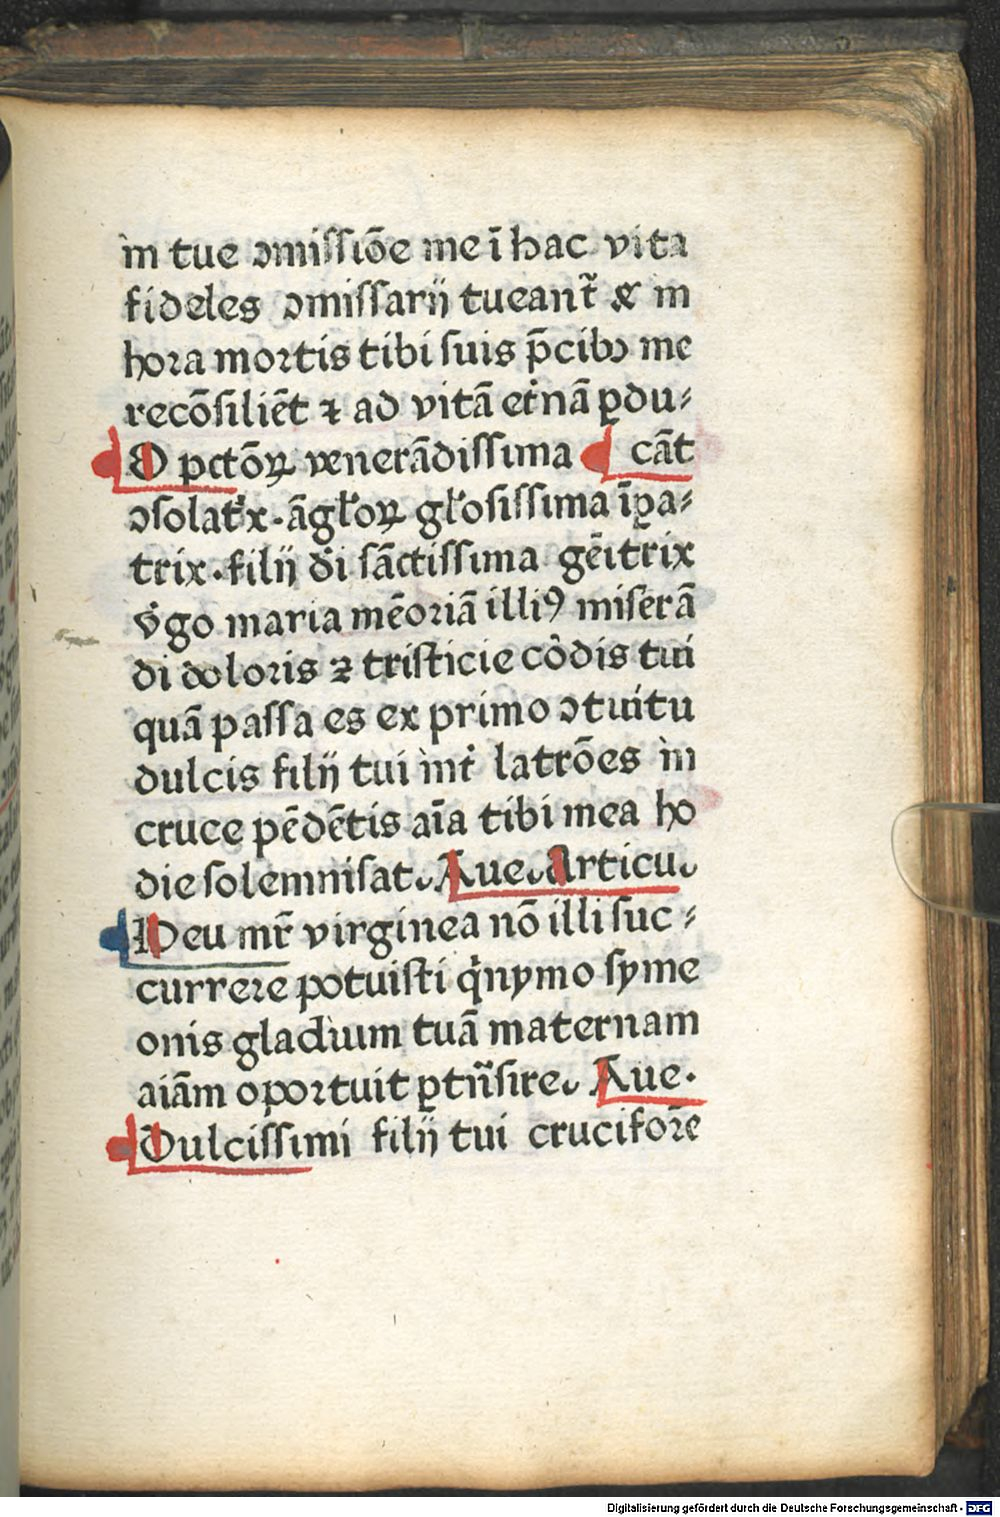 in tue ↄmissiõe me ĩ hac vita
fideles ↄmissarij tueant᷑ & in
hora mortis tibi suis p̄cibꝰ me
recõsiliẽt ⁊ ad vitã et̾nã ꝑdu⸗
O pctõꝝ venerãdissima cãt
ↄsolat᷑x · ãgl̾oꝝ gl̾osissima ĩꝑa⸗
trix · filij di̾ sãctissima gẽitrix
v̾go maria mẽoriã illiꝰ miserã
di doloris ⁊ tristicie cõdis tui
quã passa es ex primo ↄtuitu
dulcis filij tui int̾ latrões in
cruce pẽdẽtis aĩa tibi mea ho
die solemnisat. Aue. Articu.
Heu mr̃ virginea nõ illi suc⸗
currere potuisti q̾nymo syme
onis gladium tuã maternam
aiãm oportuit ꝑtñsire. Aue.
Dulcissimi filij tui crucifor̃e
Digitalisierung gefördert durch die Deutsche Forschungsgemeinschaft - DFG